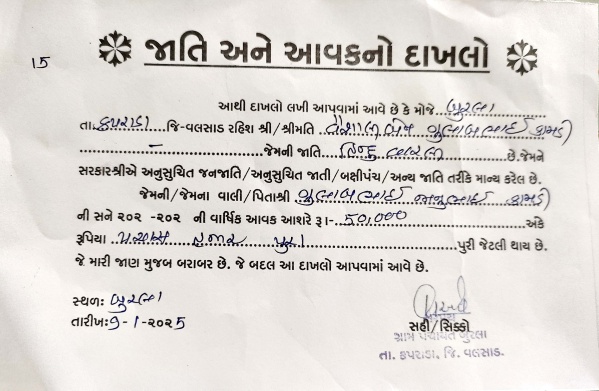 15
જાતિ અને આવકનો દાખલો
આથી દાખલો લખી આપવામાં આવે છે કે મોજે...બુરલા
તા.કપરાડા જિ-વલસાડ રહિશ શ્રી/શ્રીમતિ વૈશાલીબેન ગુલાબભાઈ કામડી
– જેમની જાતિ હિન્દુ વારલી છે.જેમને
સરકારશ્રીએ અનુસુચિત જનજાતિ/અનુસુચિત જાતી/બક્ષીપંચ/અન્ય જાતિ તરીકે માન્ય કરેલ છે.
જેમની/જેમના વાલી/પિતાશ્રી ગુલાબભાઈ કામડી
ની સને ૨૦૨ -૨૦૨ ની વાર્ષિક આવક આશરે રૂા-..50,000 અંકે
રૂપિયા પચાસ હજાર પુરા પુરી જેટલી થાય છે.
જે મારી જાણ મુજબ બરાબર છે. જે બદલ આ દાખલો આપવામાં આવે છે.
સ્થળ: બુરલા
તારીખ:9-1-૨૦૨5
સહી/સિક્કો
ગ્રામ પંચાયત બુરલા
તા. કપરાડા, જિ. વલસાડ.